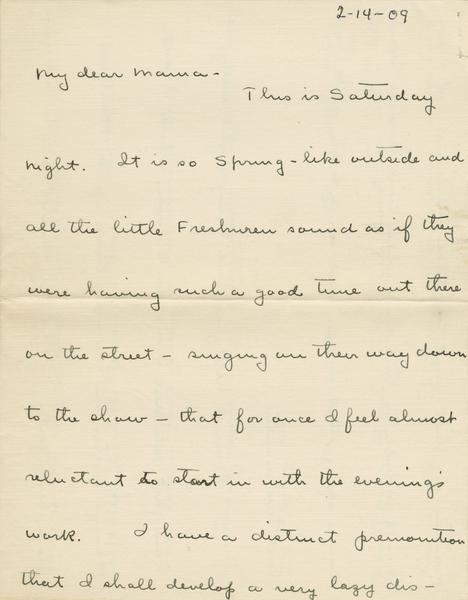 2-14-09
My dear Mama-
This is Saturday
night. It is so Spring-like outside and
all the little Freshmen sound as if they
were having such a good time out there
on the street - singing on their way down
to the show - that for once I feel almost
reluctant to start in with the evening's
work. I have a distinct premonition
that I shall develop a very lazy dis-